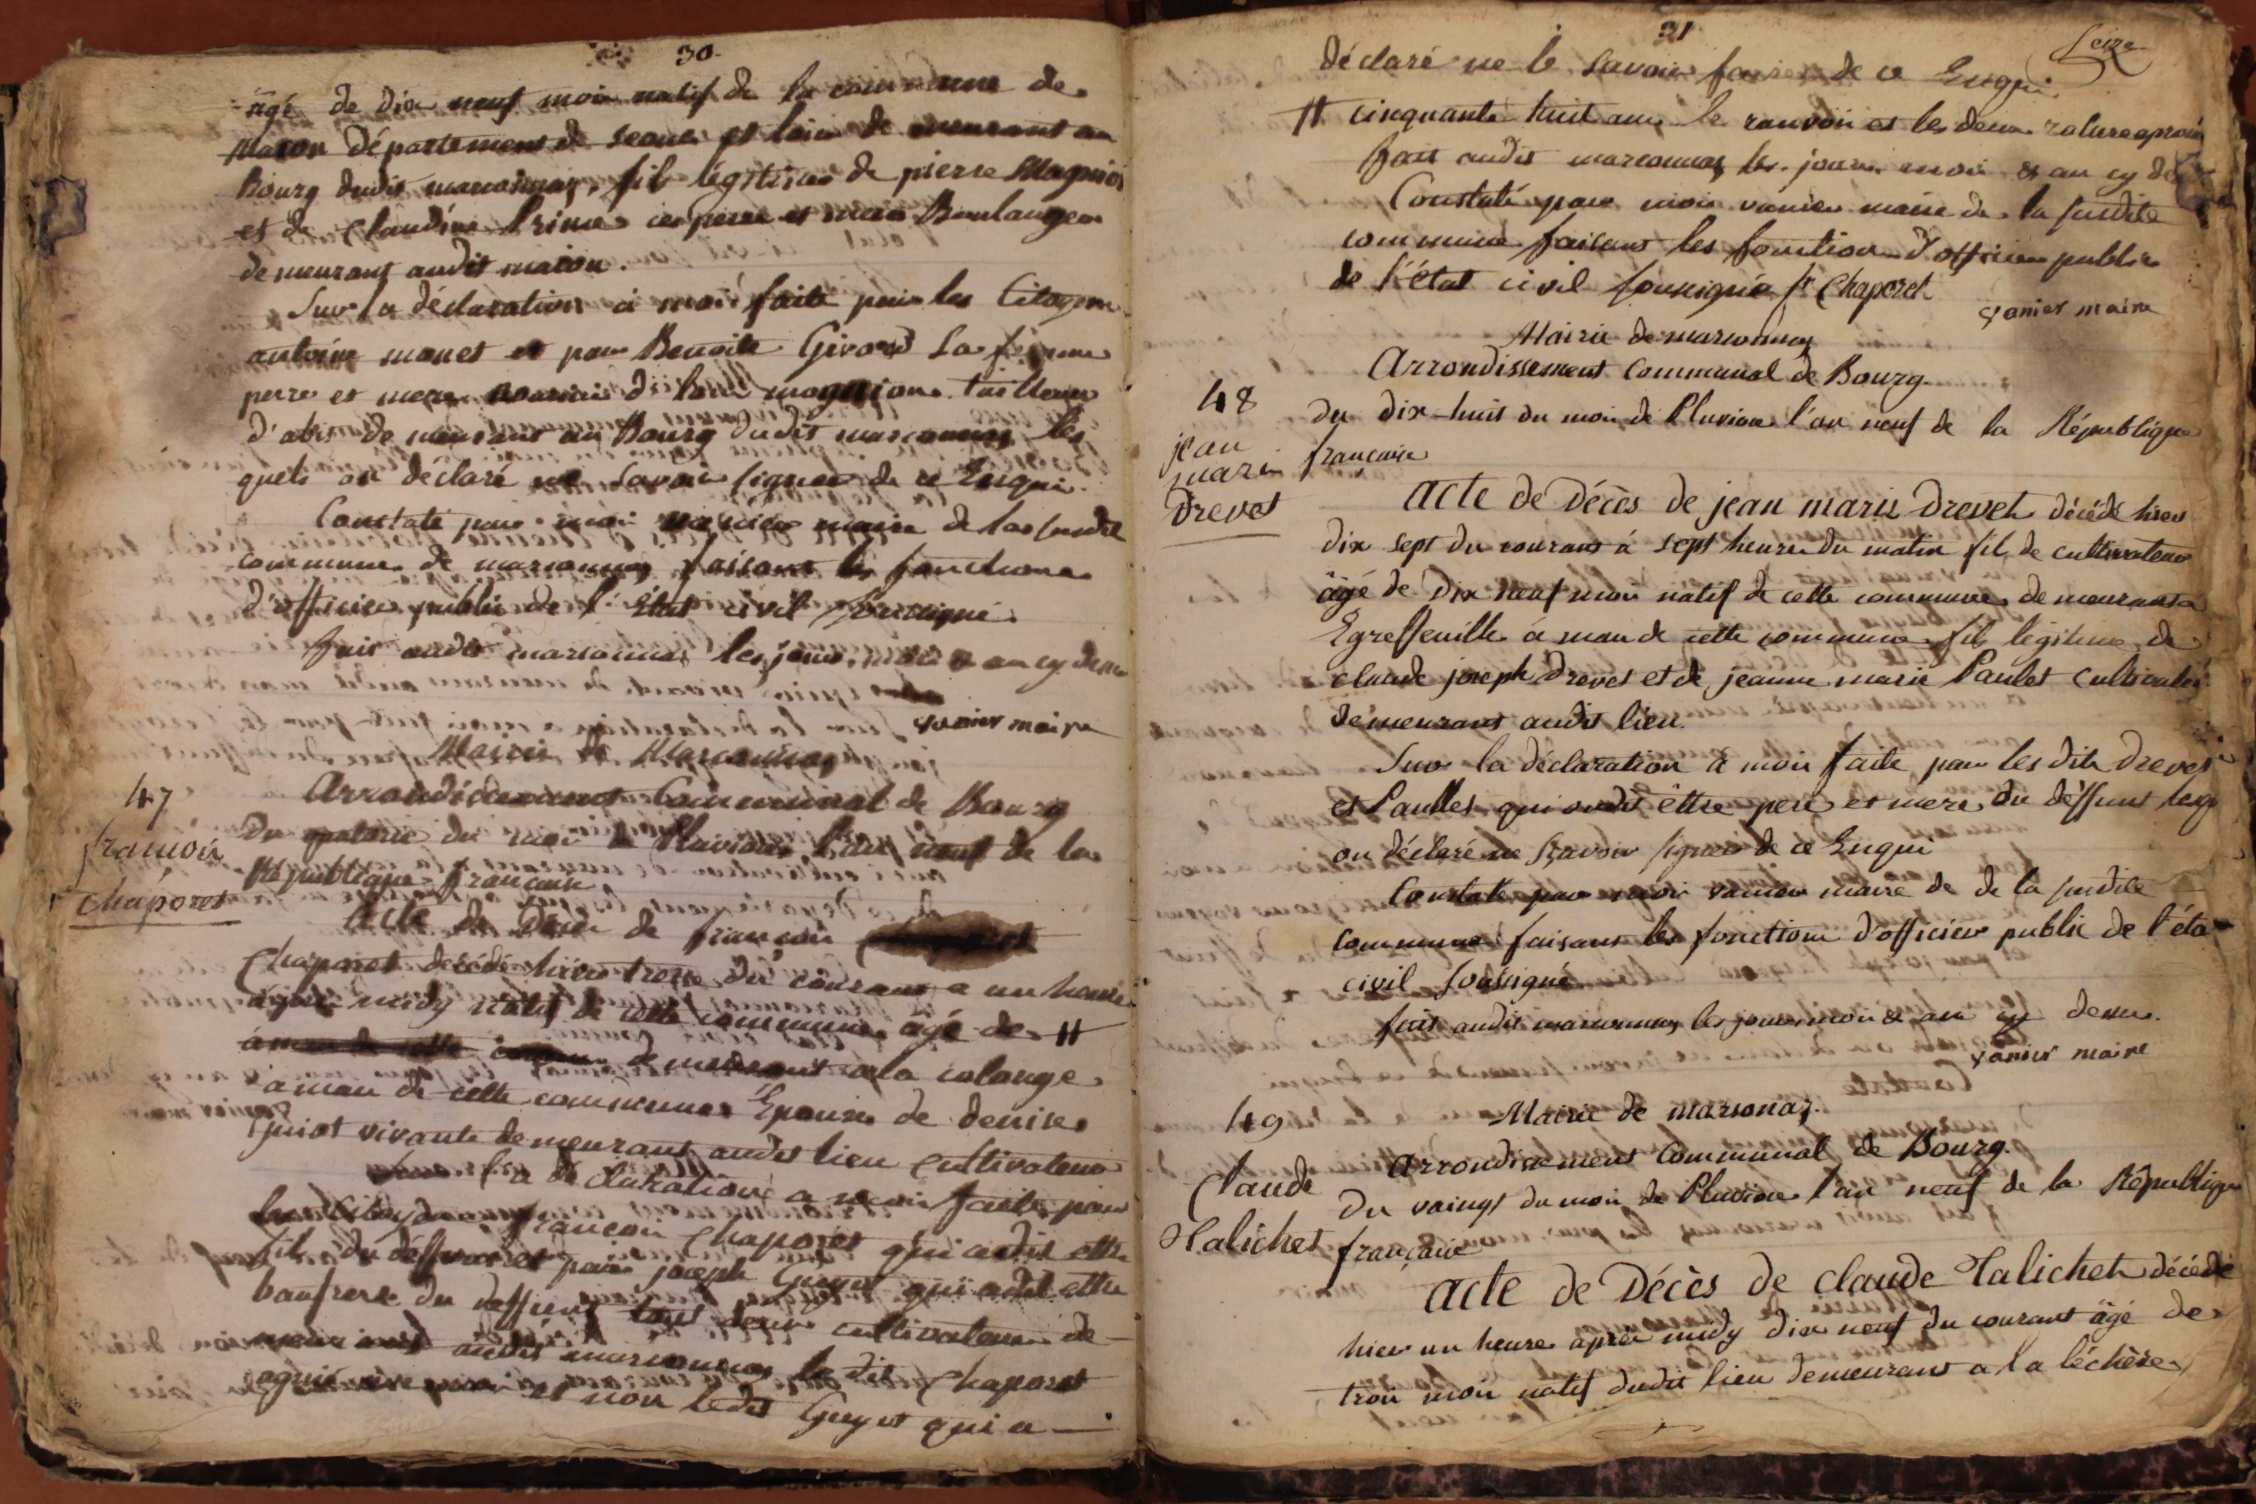 30.
âgé de dix neuf moi natif de la commune de
Macon Département de Seaune et loire demeurant au
Bourg dudit marsonnay, fils légitime de pierre
et de Claudine Prime ces pere et mere Boulanger
demeurant audit macon.
Sur la déclaration à moi faite par les Citoyens
antoine monet et par Benoite Girard sa femme
pere et mere nouriciè tailleur
d'abit demeurant au Bourg dudit marsonnay les
quels on déclaré ne savoir signer de ce Enqui.
Constaté par moi vanier maire de la susdite
commune de marsonnay faisant les fonctions
d'officier public de l'État civil soussigné.
fait audit marsonnay les jour, moi & an cy dessu
vanier maire
Mairie de Marsonnay
47
Arrondissement Communal de Bourg
françois
Chaporet
Du quatorze du moi de Pluviose l'an neuf de la
République française
Acte de Décès de françois
Chaporet décédé hier treze du courant a un heure
après midy natif de cette commune âgé de #
demeurant a la colonge
a man de cette commune Epouse de denise
guiot vivante demeurant audit lieu Cultivateur
Sur la déclaration a moi faite par
les Citoyens françois Chaporet qui a dit ettre
fils du déffunt et par joseph Guyot qui a dit ettre
baufrere du deffunt tous deux cultivateur de-
meurant audit marsonnay le dit Chaporet
a signé et non ledit Guyot qui a
31
Seize
déclaré ne le savoir faire de ce Enqui
# cinquante huit ans le ranvoii et les deux rature aprouvé
fait audit marsonnay les jour moi & an cy de
Constaté par moi vanier maire de la susdite
commune faisant les fonction d'officier public
de l'état civil soussigné fr Chaporet
vanier maire
Mairie de marsonnay
Arrondissement Communal de Bourg
48
jean
mari
Drevet
Du dix-huit du moi de Pluviose l'an neuf de la République
française
Acte de Décès de jean marie Drevet décédé hier
dix sept du courant à sept heure du matin fils de cultivateur
âgé de dix neuf moi natif de cette commune demeurant a
Egreffeuille a man de cette commune fils légitime de
claude joseph Drevet et de jeanne marie Paulet Cultivateur
demeurant audit lieu
Sur la déclaration à moi faite par les dits Drevet
et Paullet qui on dit êttre pere et mere du déffunt lesq
on déclaré ne sçavoir signer de ce Enqui
Constaté par moi vanier maire de de la susdite
commune faisant les fonction d'officier public de l'éta
civil soussigné
fait audit marsonnay les jour moi & an cy dessu.
vanier maire
49
Mairie de marsonay.
Arrondissement Communal de Bourg.
Claude
Halichet
Du vaingt du moi de Pluviose l'an neuf de la République
française
Acte de Décès de claude Halichet décédé
hier un heure après midy dix neuf du courant âgé de
troi moi natif dudit lieu demeurant a la léchère